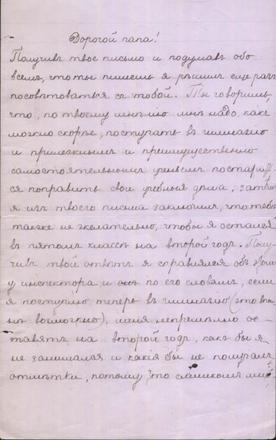 Дорогой папа!
Получивъ твое письмо и подумавъ обо
всемъ, что ты пишешь я рѣшилъ еще разъ
посовѣтоваться съ тобой. Ты говоришь
что, по твоему мнѣнію мнѣ надо, какъ
можно скорѣе, поступать въ гимназію
и прилежнымъ и преимущественно
самостоятельнымъ ученіемъ постараться
поправить свои учебныя дѣла, затѣмъ
я изъ твоего письма заключилъ, что тебѣ
также не желательно, чтобы я остался
въ пятомъ классѣ на второй годъ. Полу-
чивъ твой отвѣтъ я справлялся объ этомъ
у инспектора и по его словамъ, если
я поступлю теперь въ гимназію (это впол-
нѣ возможно), меня непремѣнно ос-
тавятъ на второй годъ, какъ бы я
не занимался и какія бы не получалъ
отмѣтки, потому что слишкомъ